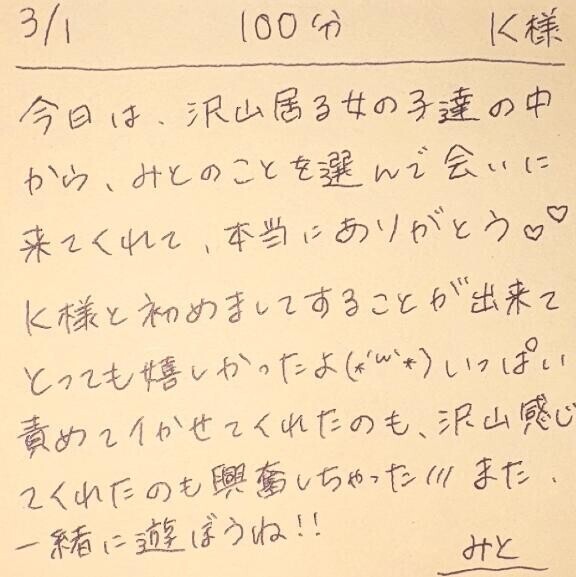 3/1 100分 K様
今日は、沢山居る女の子達の中
から、みとのことを選んで会いに
来てくれて、本当にありがとう♡♡
K様と初めましてすることが出来て
とっても嬉しかったよ(*´ω`*)いっぱい
責めてイかせてくれたのも、沢山感じ
てくれたのも興奮しちゃった/// また、
一緒に遊ぼうね!!
みと